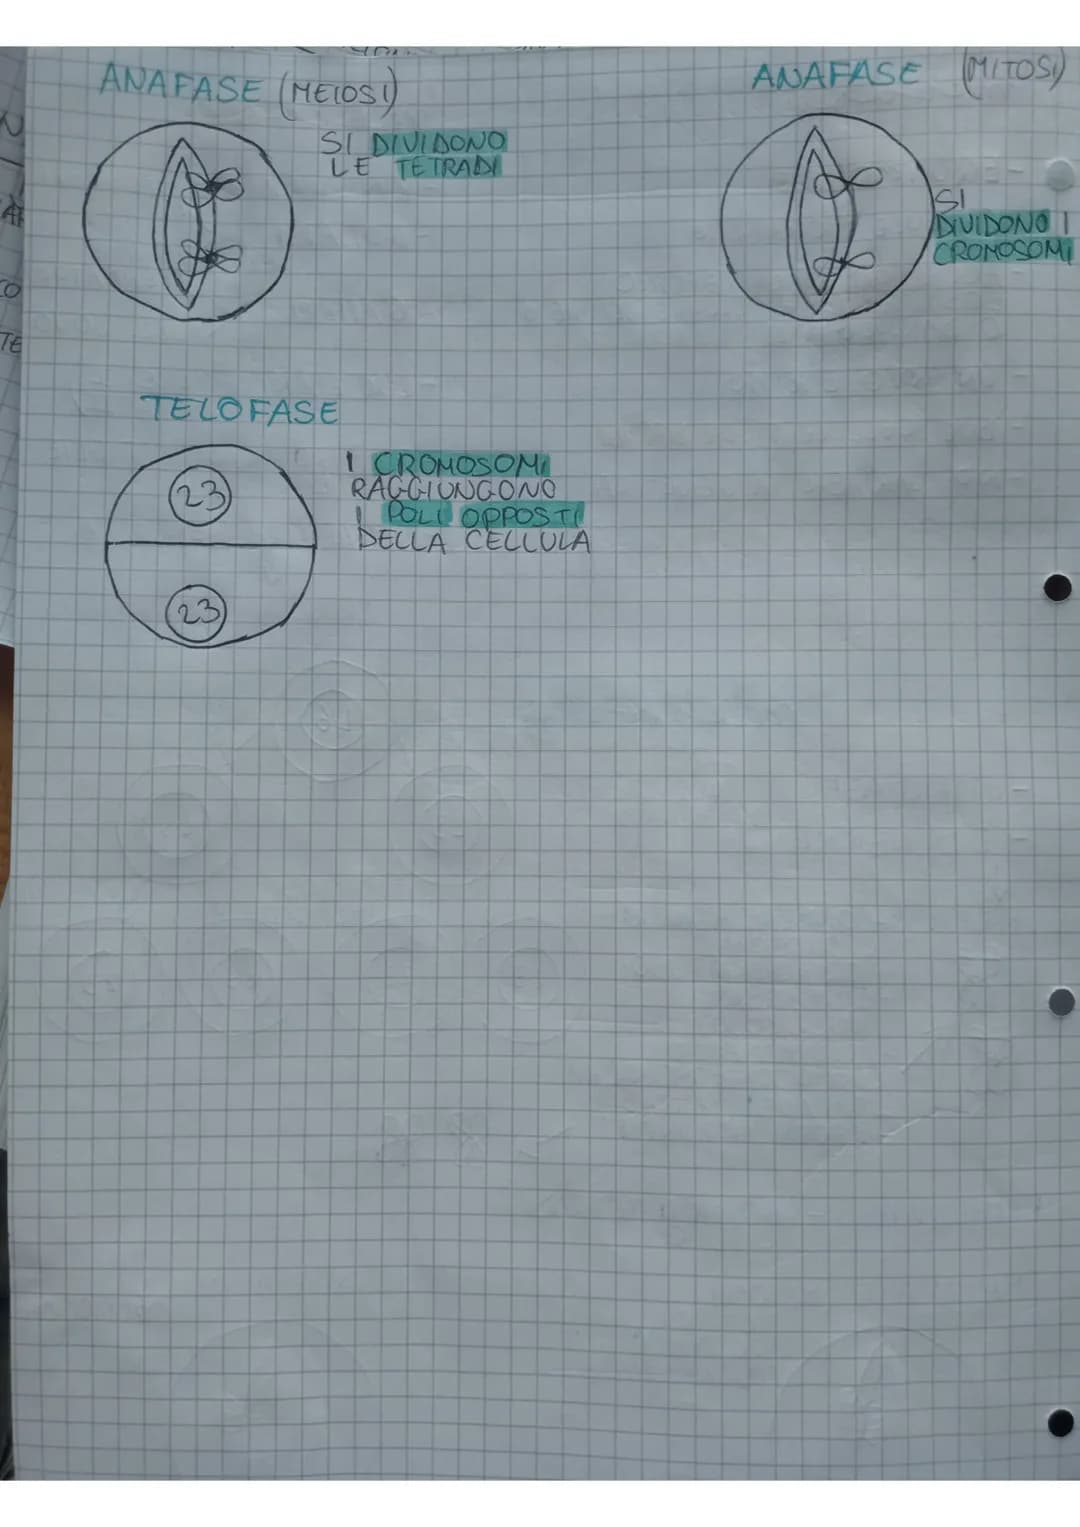 ANAFASE (MEIOSI)
SI DIVIDONO
LE TETRADI
ANAFASE (MITOSI)
SI
DIVIDONO I
CROMOSOMI
TELOFASE
23
23
I CROMOSOMI
RAGGIUNGONO
I POLI OPPOSTI
DELLA CELLULA